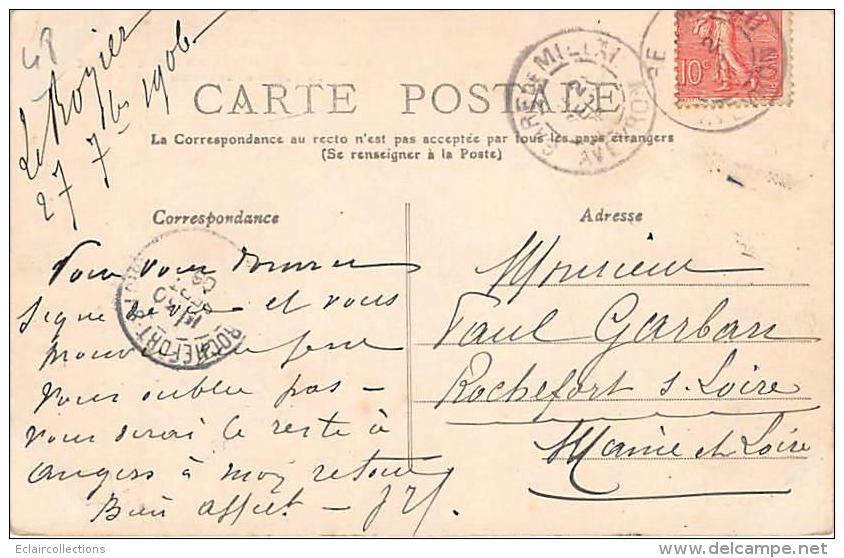 48
Le Rozier
27 7bre 1906
CARTE POSTALE
La Correspondance au recto n'est pas acceptée par tous les pays étrangers
(Se renseigner à la Poste)
GARE DE MILLAU
AVEYRON
10c
Correspondance
Adresse
Pour vous donner
signe de vie et vous
que je ne
vous oublie pas –
vous dirai le reste à
Angers à mon retour
Bien affect. –
ROCHEFORT-S-LOIRE
30
SEPT
06
Monsieur
Paul Garban
Rochefort s. Loire
Maine et Loire
Eclaircollections
www.delcampe.net